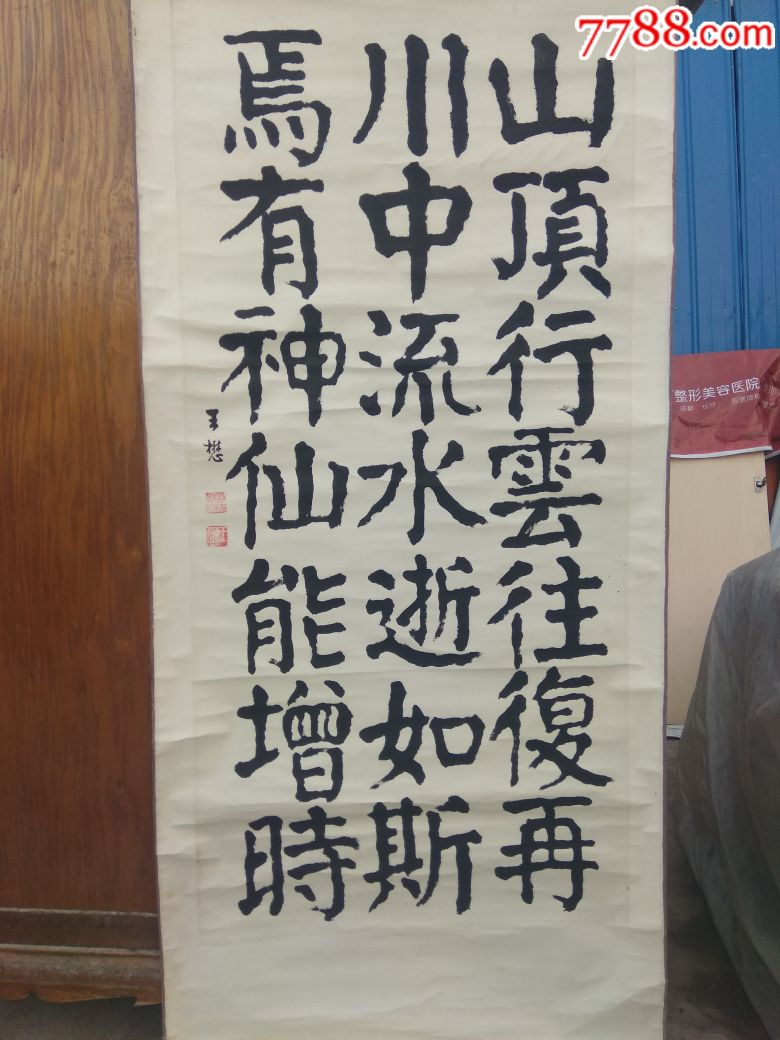 山頂行雲往復再
川中流水逝如斯
焉有神仙能增時
王懋
7788.com
整形美容医院
成都、长沙